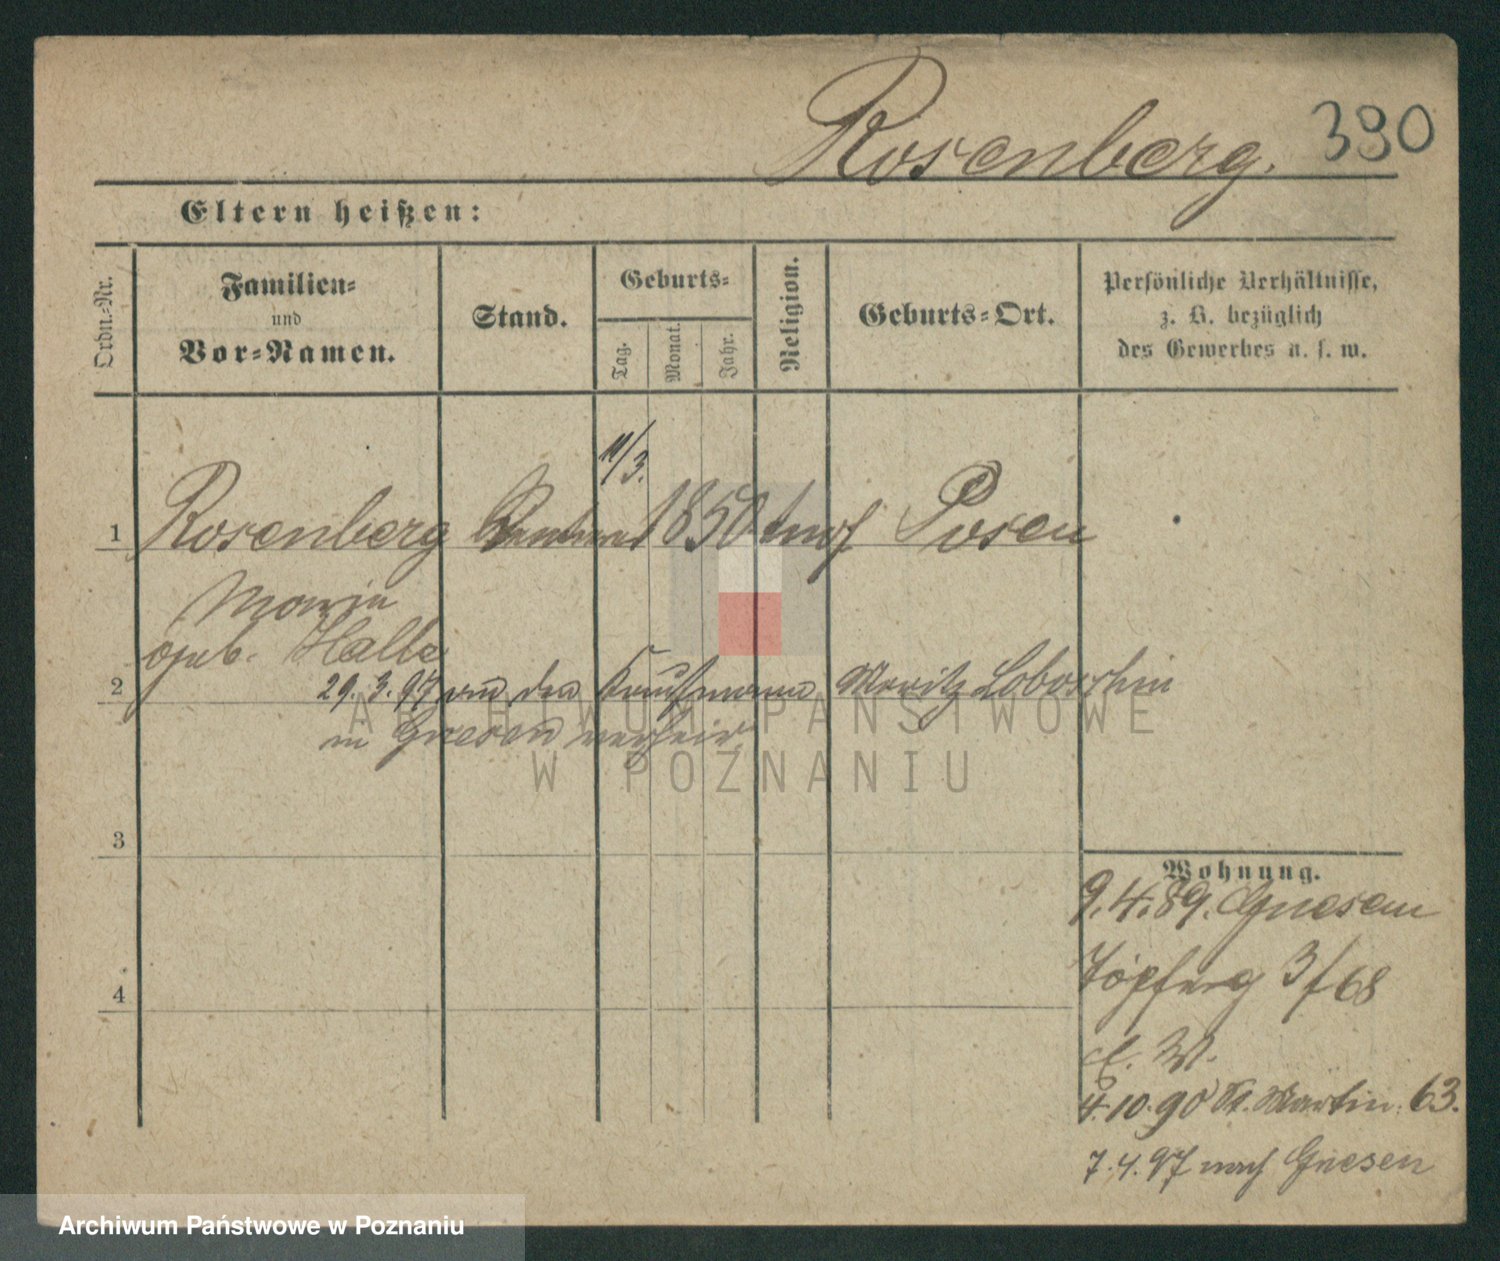 Rosenberg. 390
Eltern heißen:
Ordn.-Nr.
Familien-
und
Vor-Namen.
Stand.
Geburts-
Tag.
Monat.
Jahr.
Religion.
Geburts-Ort.
Persönliche Verhältnisse,
z. B. bezüglich
des Gewerbes u. s. w.
11/3.
1 Rosenberg 1850 Posen
geb. Halle
2 29. 3. 97 den Kaufmann Moritz
in Gnesen verheir
3
Wohnung.
9.4.89. Gnesen
4 3/68
4.10.90 St. Martin 63.
7.4.97 nach Gnesen
ARCHIWUM PAŃSTWOWE
W POZNANIU
Archiwum Państwowe w Poznaniu